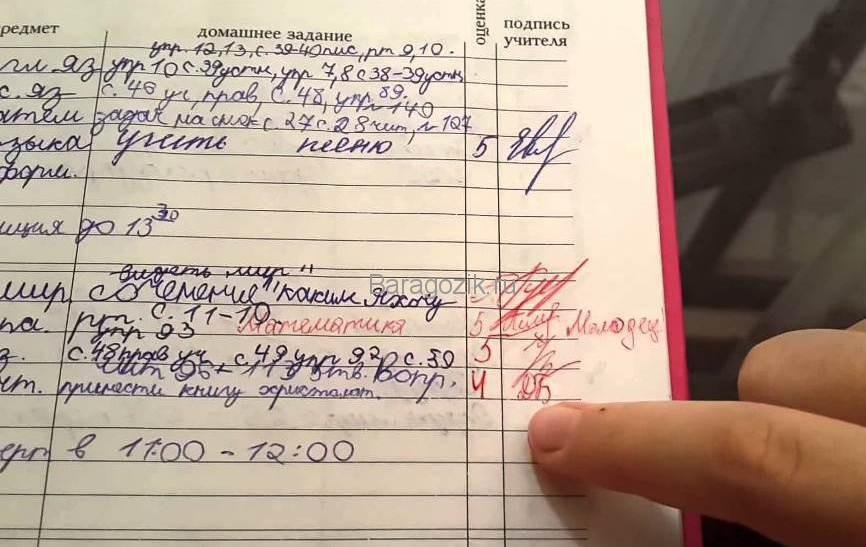 редмет домашнее задание оценка подпись учителя
упр. 12,13, с. 39-40 пис, рт 9,10.
гл. яз упр 10 с. 39 устн, упр 7,8 с 38-39 устн
с. яз с. 46 уч, прав, с. 48, упр. 89.
атем задач на смек с. 27 с. 28 чит, 140 № 127
зыка учить песню 5
форм.
иция до 13 30
видеть мир"
мир сочинение "каким я хочу
Baragozik.ru
па. рт. с. 11-10. Математика 5 Молодец!
упр 93
з. с. 48 прав уч с. 49 упр 92 с. 50 5
чит 96 отв. Вопр.
т. принести книгу христомат. 4
ерт в 11:00 - 12:00